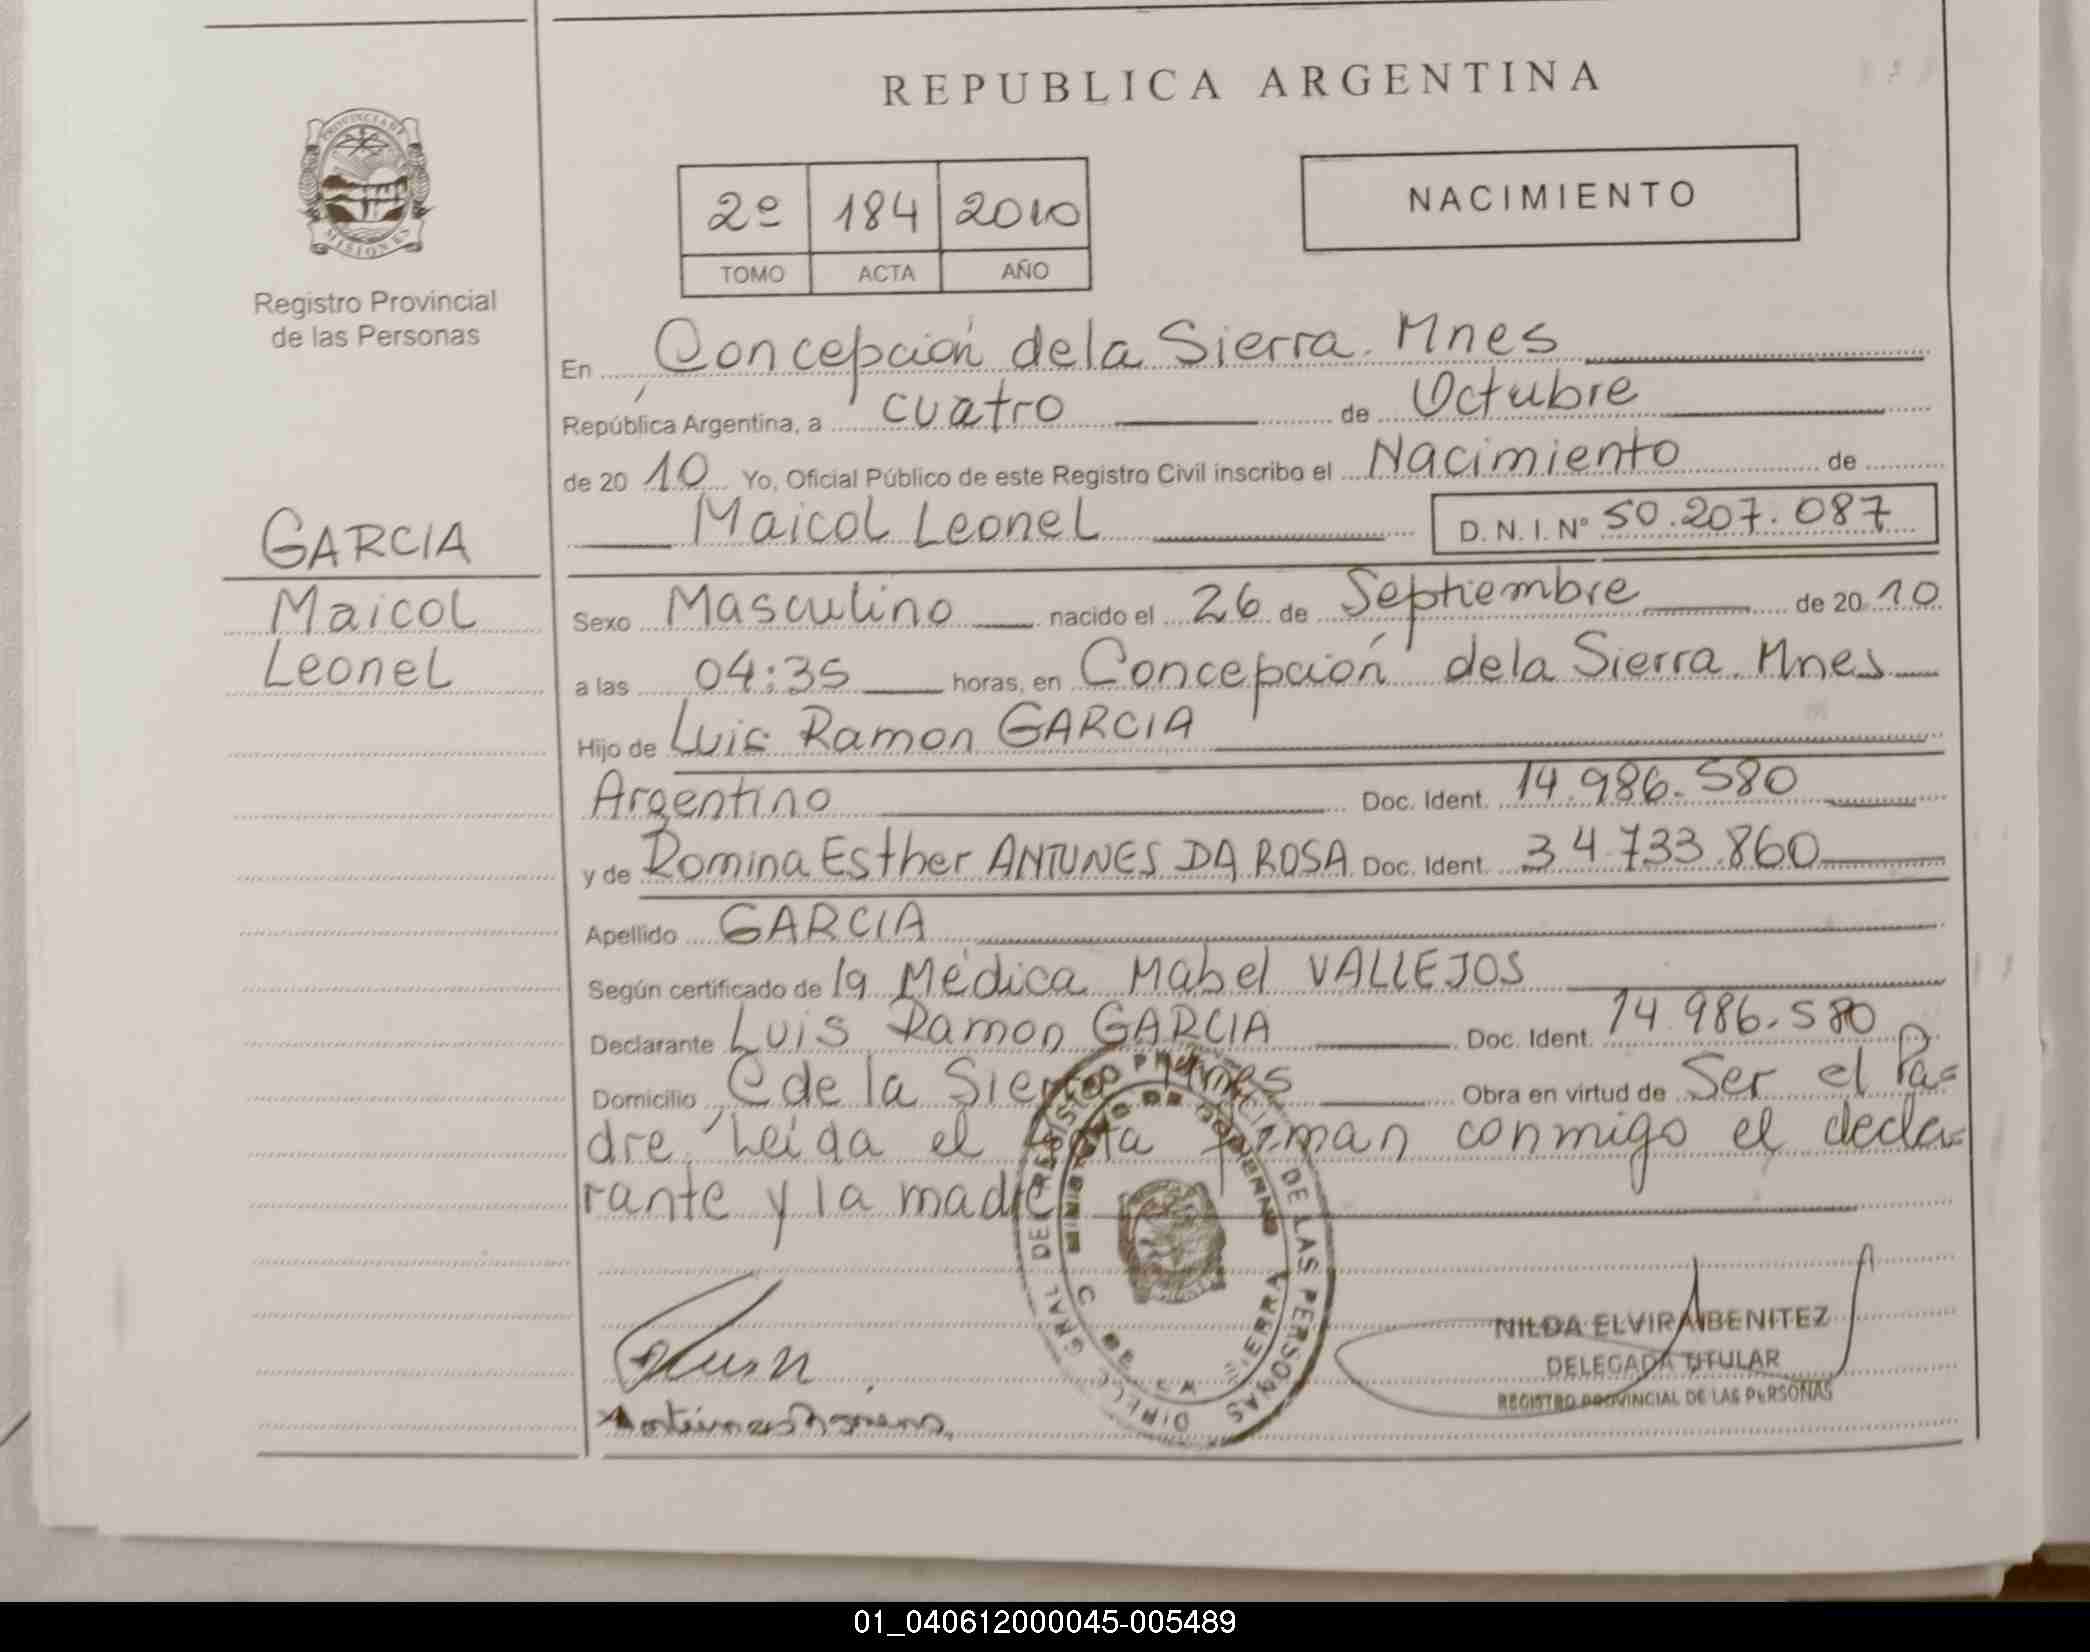 REPUBLICA ARGENTINA
PROVINCIA DE
MISIONES
Registro Provincial
de las Personas
2º 184 2010
TOMO ACTA AÑO
NACIMIENTO
En Concepción de la Sierra. Mnes
República Argentina, a cuatro de Octubre
de 20 10 Yo, Oficial Público de este Registro Civil inscribo el Nacimiento de
Maicol Leonel D. N. I. Nº 50.207.087
GARCIA
Maicol
Leonel
Sexo Masculino nacido el 26 de Septiembre de 20 10
a las 04:35 horas, en Concepción de la Sierra. Mnes
Hijo de Luis Ramon GARCIA
Argentino Doc. Ident. 14.986.580
y de Romina Esther ANTUNES DA ROSA Doc. Ident. 34.733.860
Apellido GARCIA
Según certificado de la Médica Mabel VALLEJOS
Declarante Luis Ramon GARCIA Doc. Ident. 14.986.580
Domicilio C de la Sierra Mnes Obra en virtud de Ser el Pa=
dre. Leida el Acta firman conmigo el decla=
rante y la madre
DE LAS PERSONAS
SIERRA
NILDA ELVIRA BENITEZ
DELEGADA TITULAR
REGISTRO PROVINCIAL DE LAS PERSONAS
01_040612000045-005489